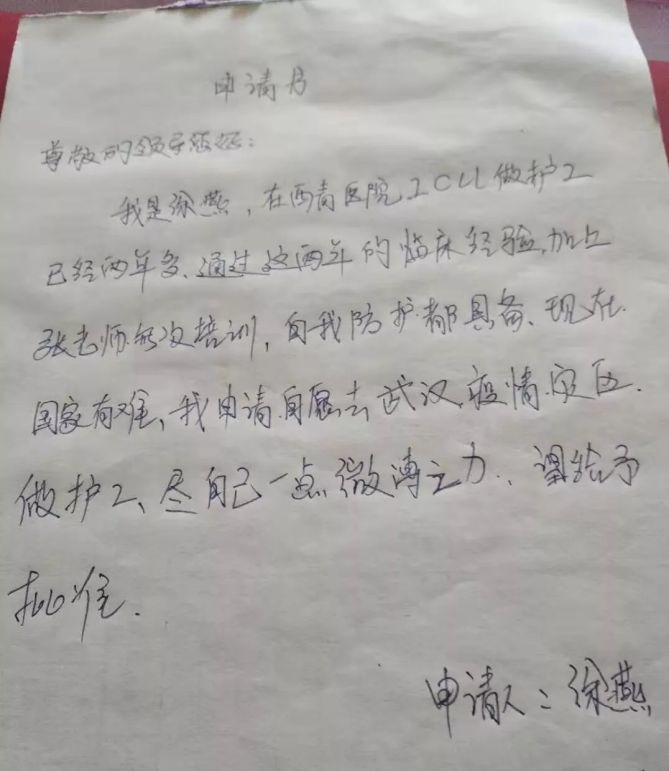 申请书
尊敬的领导您好:
我是徐燕,在西青医院ICU做护工
已经两年多、通过这两年的临床经验,加上
张老师每次培训,自我防护都具备、现在
国家有难、我申请自愿去武汉疫情灾区.
做护工、尽自己一点微薄之力.、望给予
批准.
申请人:徐燕